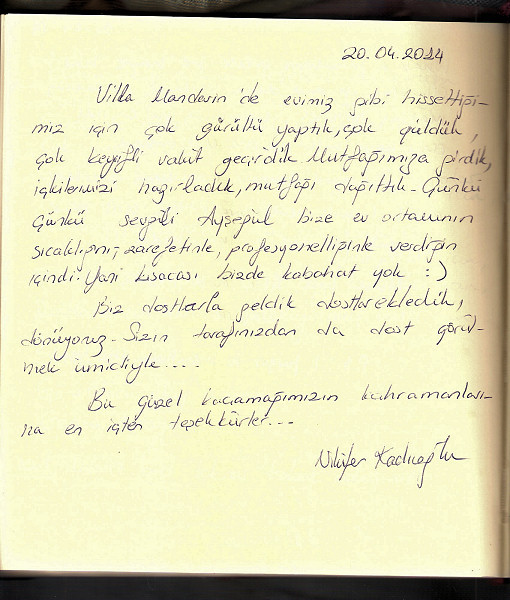 20.04.2014
Villa Mandarin'de evimiz gibi hissettiği-
miz için çok gürültü yaptık, çok güldük,
çok keyifli vakit geçirdik. Mutfağımıza girdik,
içkilerimizi hazırladık, mutfağı dağıttık. Çünkü
Çünkü sevgili Ayşegül bize ev ortamının
sıcaklığını, zarefetinle, profesyonelliğinle verdiğin
içindi. Yani kısacası bizde kabahat yok :)
Biz dostlarla geldik dostlar ekledik,
dönüyoruz. Sizin tarafınızdan da dost görül-
mek ümidiyle....
Bu güzel kaçamağımızın kahramanları-
na en içten teşekkürler...
Nilüfer Kadıoğlu